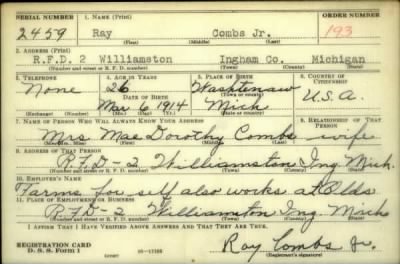 SERIAL NUMBER 1. NAME (Print) ORDER NUMBER
2459 Ray Combs Jr. 193
(First) (Middle) (Last)
2. ADDRESS (Print)
R.F.D. 2 Williamston Ingham Co. Michigan
(Number and street or R. F. D. number) (Town) (County) (State)
3. TELEPHONE 4. AGE IN YEARS 5. PLACE OF BIRTH 6. COUNTRY OF CITIZENSHIP
None 26 Washtenaw U.S.A.
DATE OF BIRTH (Town or county)
Mar 6 1914 Mich
(Exchange) (Number) (Mo.) (Day) (Yr.) (State or country)
7. NAME OF PERSON WHO WILL ALWAYS KNOW YOUR ADDRESS 8. RELATIONSHIP OF THAT PERSON
Mrs Mae Dorothy Combs wife
(Mr., Mrs., Miss) (First) (Middle) (Last)
9. ADDRESS OF THAT PERSON
R.F.D-2 Williamston Ing. Mich.
(Number and street or R. F. D. number) (Town) (County) (State)
10. EMPLOYER'S NAME
Farms for self also works at Olds
11. PLACE OF EMPLOYMENT OR BUSINESS
R.F.D-2 Williamston Ing. Mich
(Number and street or R. F. D. number) (Town) (County) (State)
I AFFIRM THAT I HAVE VERIFIED ABOVE ANSWERS AND THAT THEY ARE TRUE.
REGISTRATION CARD
D. S. S. Form 1
Ray Combs Jr.
(Registrant's signature)